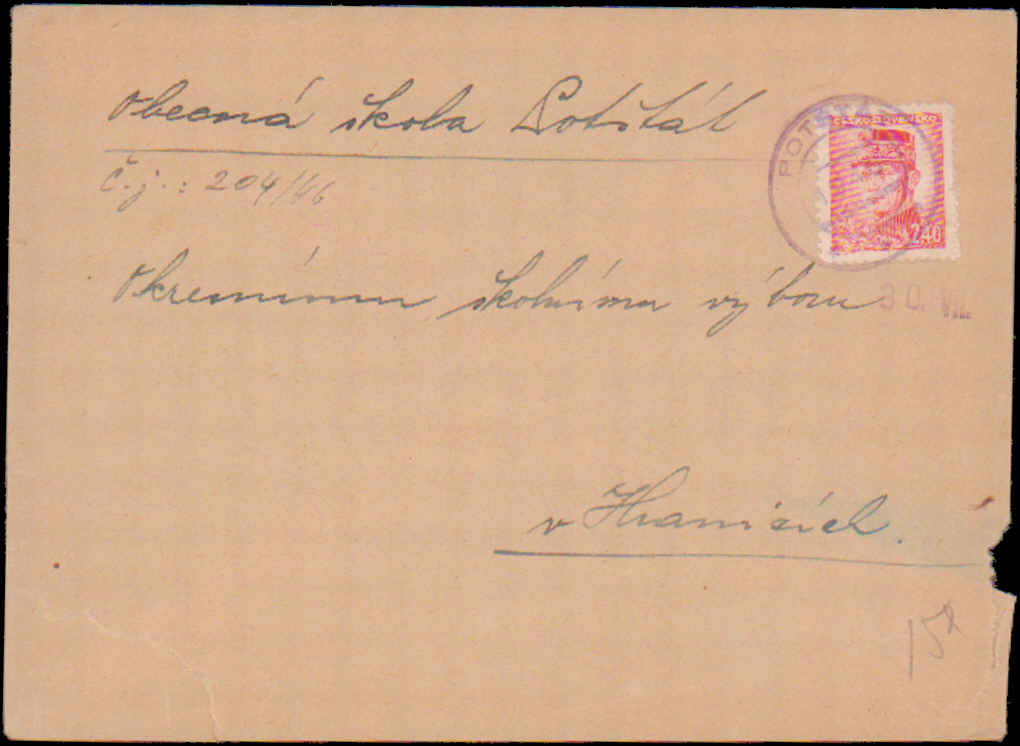 Obecná škola Potštát
POTŠTÁ
ČESKOSLOVENSKO
2·40
Č.j.: 204/46
Okresnímu školnímu výboru
30. VII.
v Hranicích.
15